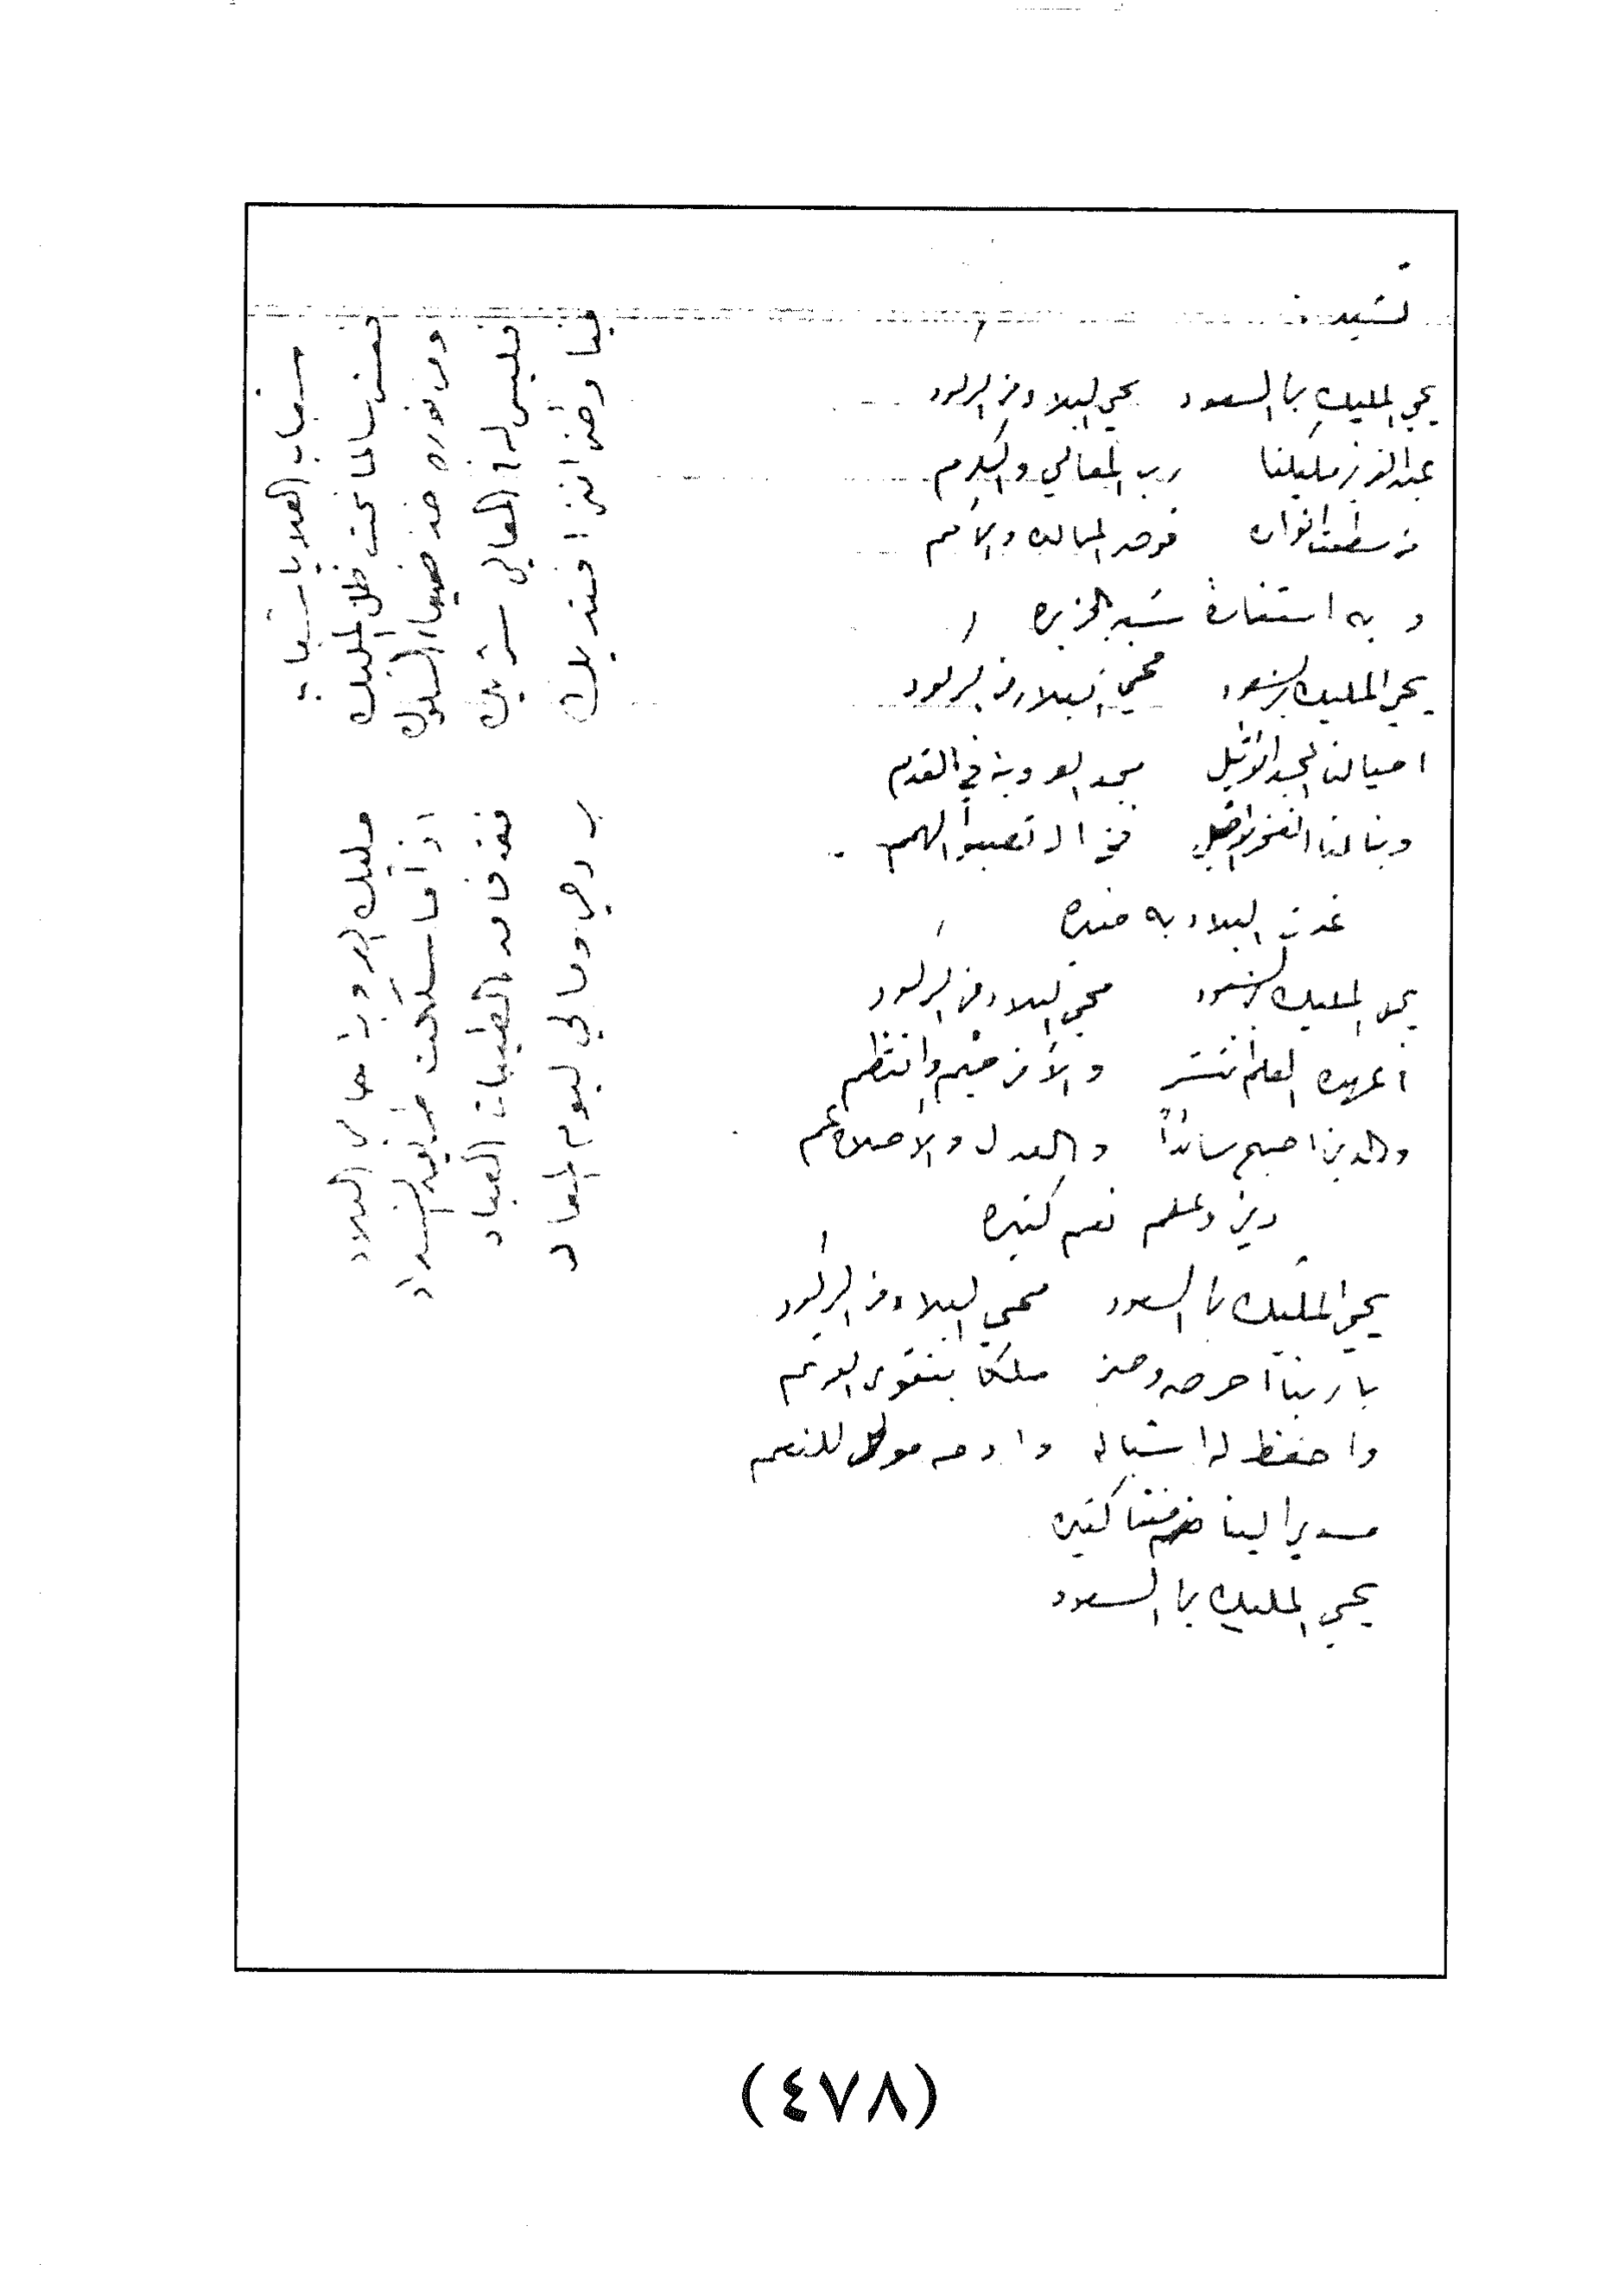 نشيد :
يحي المليك بن السعود يحي البلاد من الركود
عبد العزيز مليكنا رب المعالي والكرم
من سطعت انواره فوق الممالك والامم
وبه استنارة شبه الجزيره
يحي المليك بن السعود محي البلاد من الركود
احيا لنا المجد الاثيل مجد العروبة في القدم
وبنا لنا الفخر
غدت البلاد به منيره
يحي المليك بن السعود محي البلاد من الركود
أ عهده العلم انتشر والأمن خيم وانتظم
والدين اصبح سائداً والعدل والاصلاح عم
دين وعلم نعم كثيره
يحي المليك بن السعود محي البلاد من الركود
يا ربنا احرصه وصن ملكاً بتقوى
واحفظ له اشباله وادمه مولى للنعم
مسدي الينا كثيره
يحي المليك بن السعود
شباب الهدى يا شباب
نعش سالما تحت ظل المليك مليك العروبة حامي البلاد
ومن نوره خذ ضياء السلوك اذا ما سلكت طريق السداد
فليس له في المعالي شريك فقد فاق الطيبات العباد
فيا وطني انني افتديك بروحي ومالي ليوم المعاد
(٤٧٨)